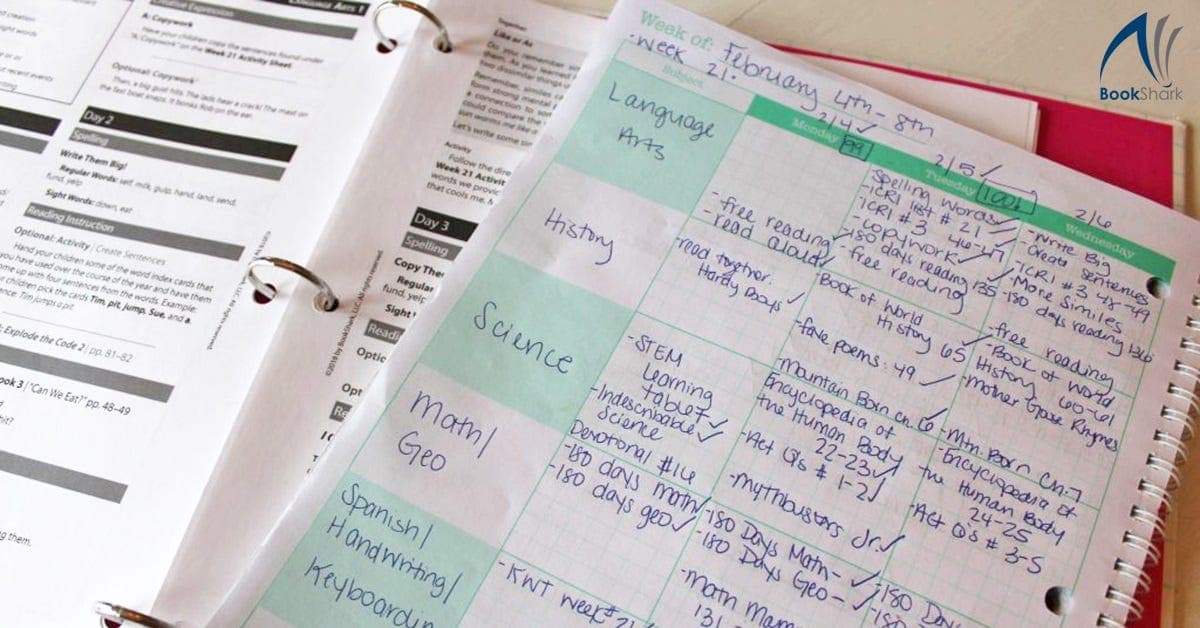 Creative Expression
LANGUAGE ARTS 1
A: Copywork
Have your children copy the sentences found under
"A: Copywork" on the Week 21 Activity Sheet
Optional: Copywork
Then, a big gust hits. The lads hear a crack! The mast on
the fast boat snaps. It bonks Rob on the ear.
Day 2
Spelling
Write Them Big!
Regular Words: self, milk, gulp, hand, land, send,
fund, yelp
Sight Words: down, eat
Reading Instruction
Optional: Activity | Create Sentences
Hand your children some of the word index cards that
you have used over the course of the year and have them
come up with four sentences from the words. Example:
children pick the cards Tim, pit, jump, Sue, and a.
Tim jumps a pit.
Explode the Code 2 | pp. 81–82
ook 3 | "Can We Eat?" pp. 48–49
Together
Like or As
Activity
Follow the
Week 21 Activit
words we provi
that cools me.
Day 3
Spelling
Copy The
fund, yelp
Sight
Optio
Opt
BookShark
Week of: February 4th - 8th
-Week 21-
Subject
Monday
Tuesday
Wednesday
2/4 ✓
99
2/5 ✓
100
2/6
Language
Arts
-free reading
-read aloud ✓
Spelling words ✓
-ICR1 list # 21 ✓
-ICR1 #3 46-47 ✓
-copywork ✓
-180 days reading 135
-free reading
-Write Big
-Create sentences
-ICR1 #3 48-49
-More similes
-180 days reading 136
-free reading
History
-read together:
Hardy Boys ✓
-Book of World
History 65 ✓
-fave poems: 49 ✓
-Book of World
History 60-61
-Mother Goose Rhymes
Science
-STEM
Learning
tablet ✓
-Indescribable ✓
Science
Devotional #16
-Mountain Born Ch. 6 ✓
Encyclopedia of
the Human Body
22-23 ✓
-Act Q's # 1-2 ✓
-Mythbusters Jr. ✓
-Mtn. Born Ch. 7
-Encyclopedia of
the Human Body
24-25
-Act Q's # 3-5
Math/
Geo
-180 days math ✓
-180 days geo ✓
-180 Days Math- ✓
-180 Days Geo- ✓
-Math Mam
131
-180 Day
-180
Spanish/
Handwriting/
Keyboardin
-KWT week# 21